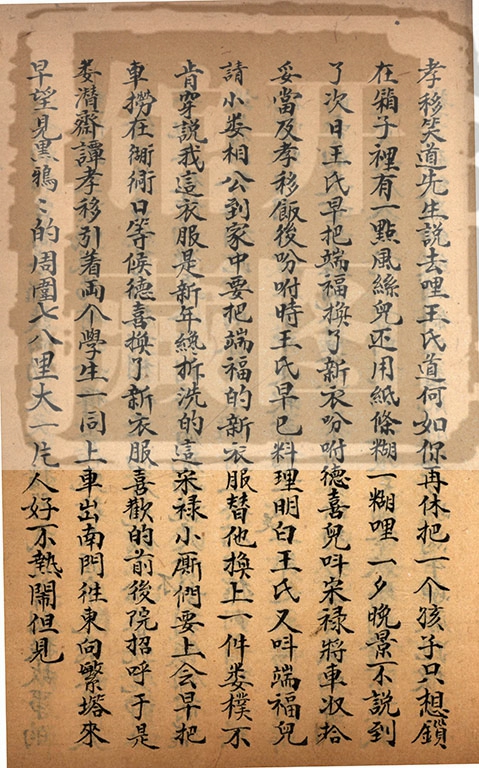 孝移笑道先生說去哩王氏道何如你再休把一个孩子只想鎖
在箱子裡有一點風絲兒还用紙條糊一糊哩一夕晚景不說到
了次日王氏早把端福換了新衣吩咐德喜兒呌宋禄將車収拾
妥當及孝移飯後吩咐時王氏早已料理明白王氏又呌端福兒
請小娄相公到家中要把端福的新衣服替他換上一件娄樸不
肯穿說我這衣服是新年纔拆洗的這宋禄小厮們要上会早把
車撈在衚衕口等候德喜換了新衣服喜歡的前後院招呼于是
娄潛齋譚孝移引着両个學生一同上車出南門徃東向繁塔來
早望見黒鴉〻的周圍七八里大一片人好不熱鬧但見